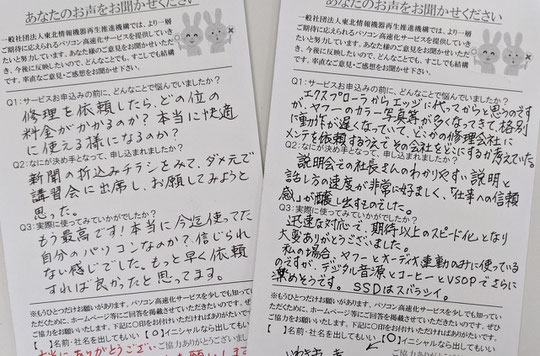 あなたのお声をお聞かせください
一般社団法人東北情報機器再生推進機構では、より一層
ご期待に応えられるパソコン高速化サービスを提供していき
たいと努力しています。あなたのご意見をお聞かせいただ
き、今後に反映したいので、どんなことでも、すこしでも結構
です。率直なご意見・ご感想をお聞かせ下さい。
Q1:サービスお申込みの前に、どんなことで悩んでいましたか?
修理を依頼したら、どの位の
料金がかかるのか?本当に快適
に使える様になるのか?
Q2:なにが決め手となって、申し込まれましたか?
新聞の折込みチラシをみて、ダメ元で
講習会に出席し、お願してみようと
思った。
Q3:実際に使ってみていかがでしたか?
もう最高です!本当に今迄使ってた
自分のパソコンなのか?信じられ
ない感じでした。もっと早く依頼
すれば良かったと思ってます。
※もうひとつお願いがあります。パソコン高速化サービスを少しでも知ってい
ただくために、ホームページ等にご回答を掲載させていただきたいのです。ぜひ
ご協力お願いいたします。下記に○印をお付けいただければありがたいです。
【 】名前・社名を出してもいい 【O】イニシャルなら出してもいい
ご協力ありがとうござい
あなたのお声をお聞かせください
一般社団法人東北情報機器再生推進機構では、より一層
ご期待に応えられるパソコン高速化サービスを提供していき
たいと努力しています。あなたのご意見をお聞かせいただ
き、今後に反映したいので、どんなことでも、すこしでも結構
です。率直なご意見・ご感想をお聞かせ下さい。
Q1:サービスお申込みの前に、どんなことで悩んでいましたか?
エクスプローラからエッジに代ってからと思うのです
が、ヤフーのカラー写真等が多くなってきて、格別
に動作が遅くなっていて、どこかの修理会社に
メンテを依頼するうえでその会社をどこにするか考えていた。
Q2:なにが決め手となって、申し込まれましたか?
説明会での社長さんのわかりやすい説明と
話し方の速度が非常に好ましく、「仕事への信頼
感」が醸し出すものでした。
Q3:実際に使ってみていかがでしたか?
迅速な対応で、期待以上のスピード化となり
大変ありがとうございました。
私の場合、ヤフーとオーディオ連動のみに使っている
のですが、デジタル音源とコーヒーとVSOPでさらに
楽めそうです。SSDはスバラシイ。
※もうひとつお願いがあります。パソコン高速化サービスを少しでも知ってい
ただくために、ホームページ等にご回答を掲載させていただきたいのです。ぜひ
ご協力お願いいたします。下記に○印をお付けいただければありがたいです。
【 】名前・社名を出してもいい 【O】イニシャルなら出してもいい
ご協力ありがとうござい